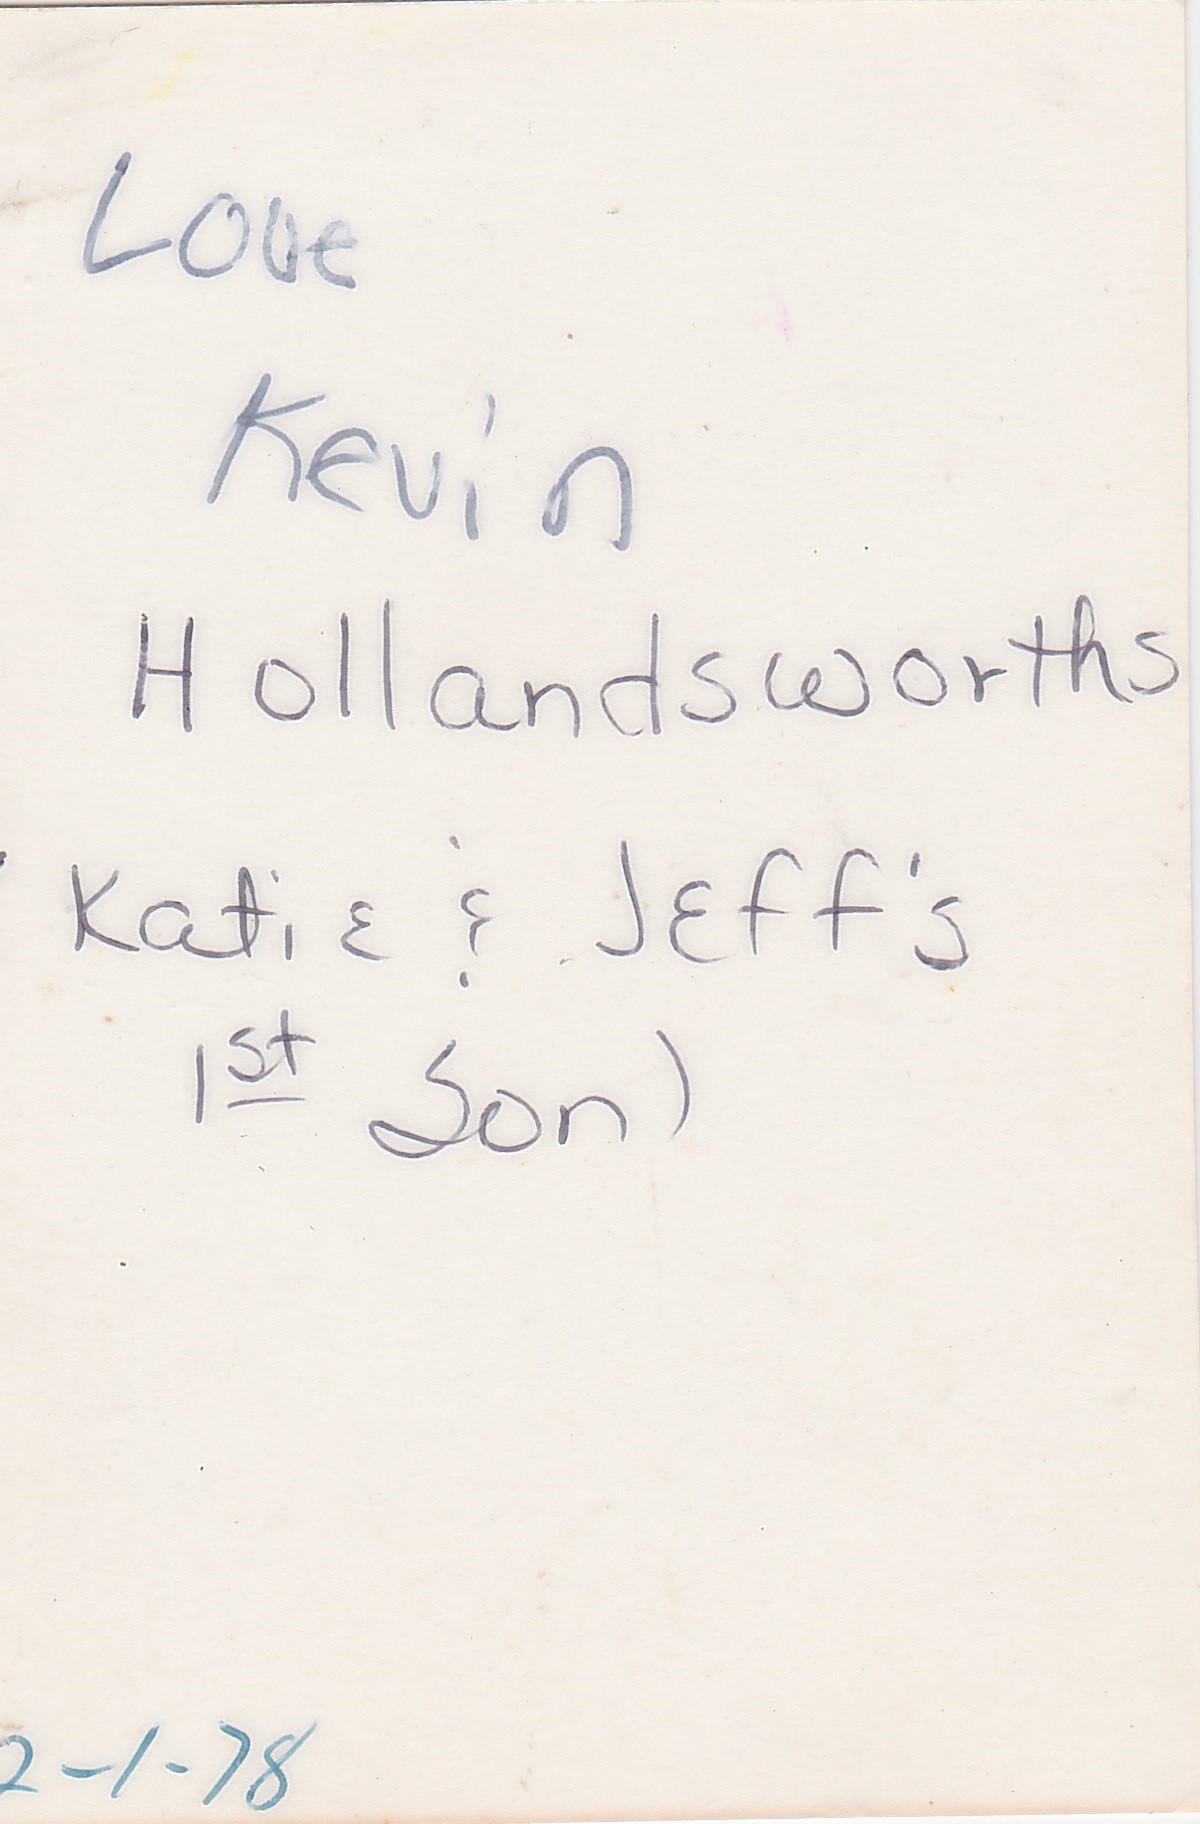 Love
Kevin
Hollandsworths
Katie & Jeff's
1st Son)
2-1-78